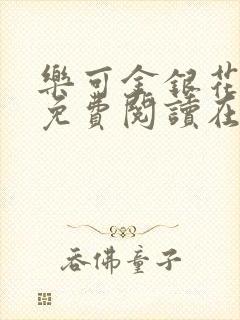 樂可金銀花
免費閱讀在
吞佛童子